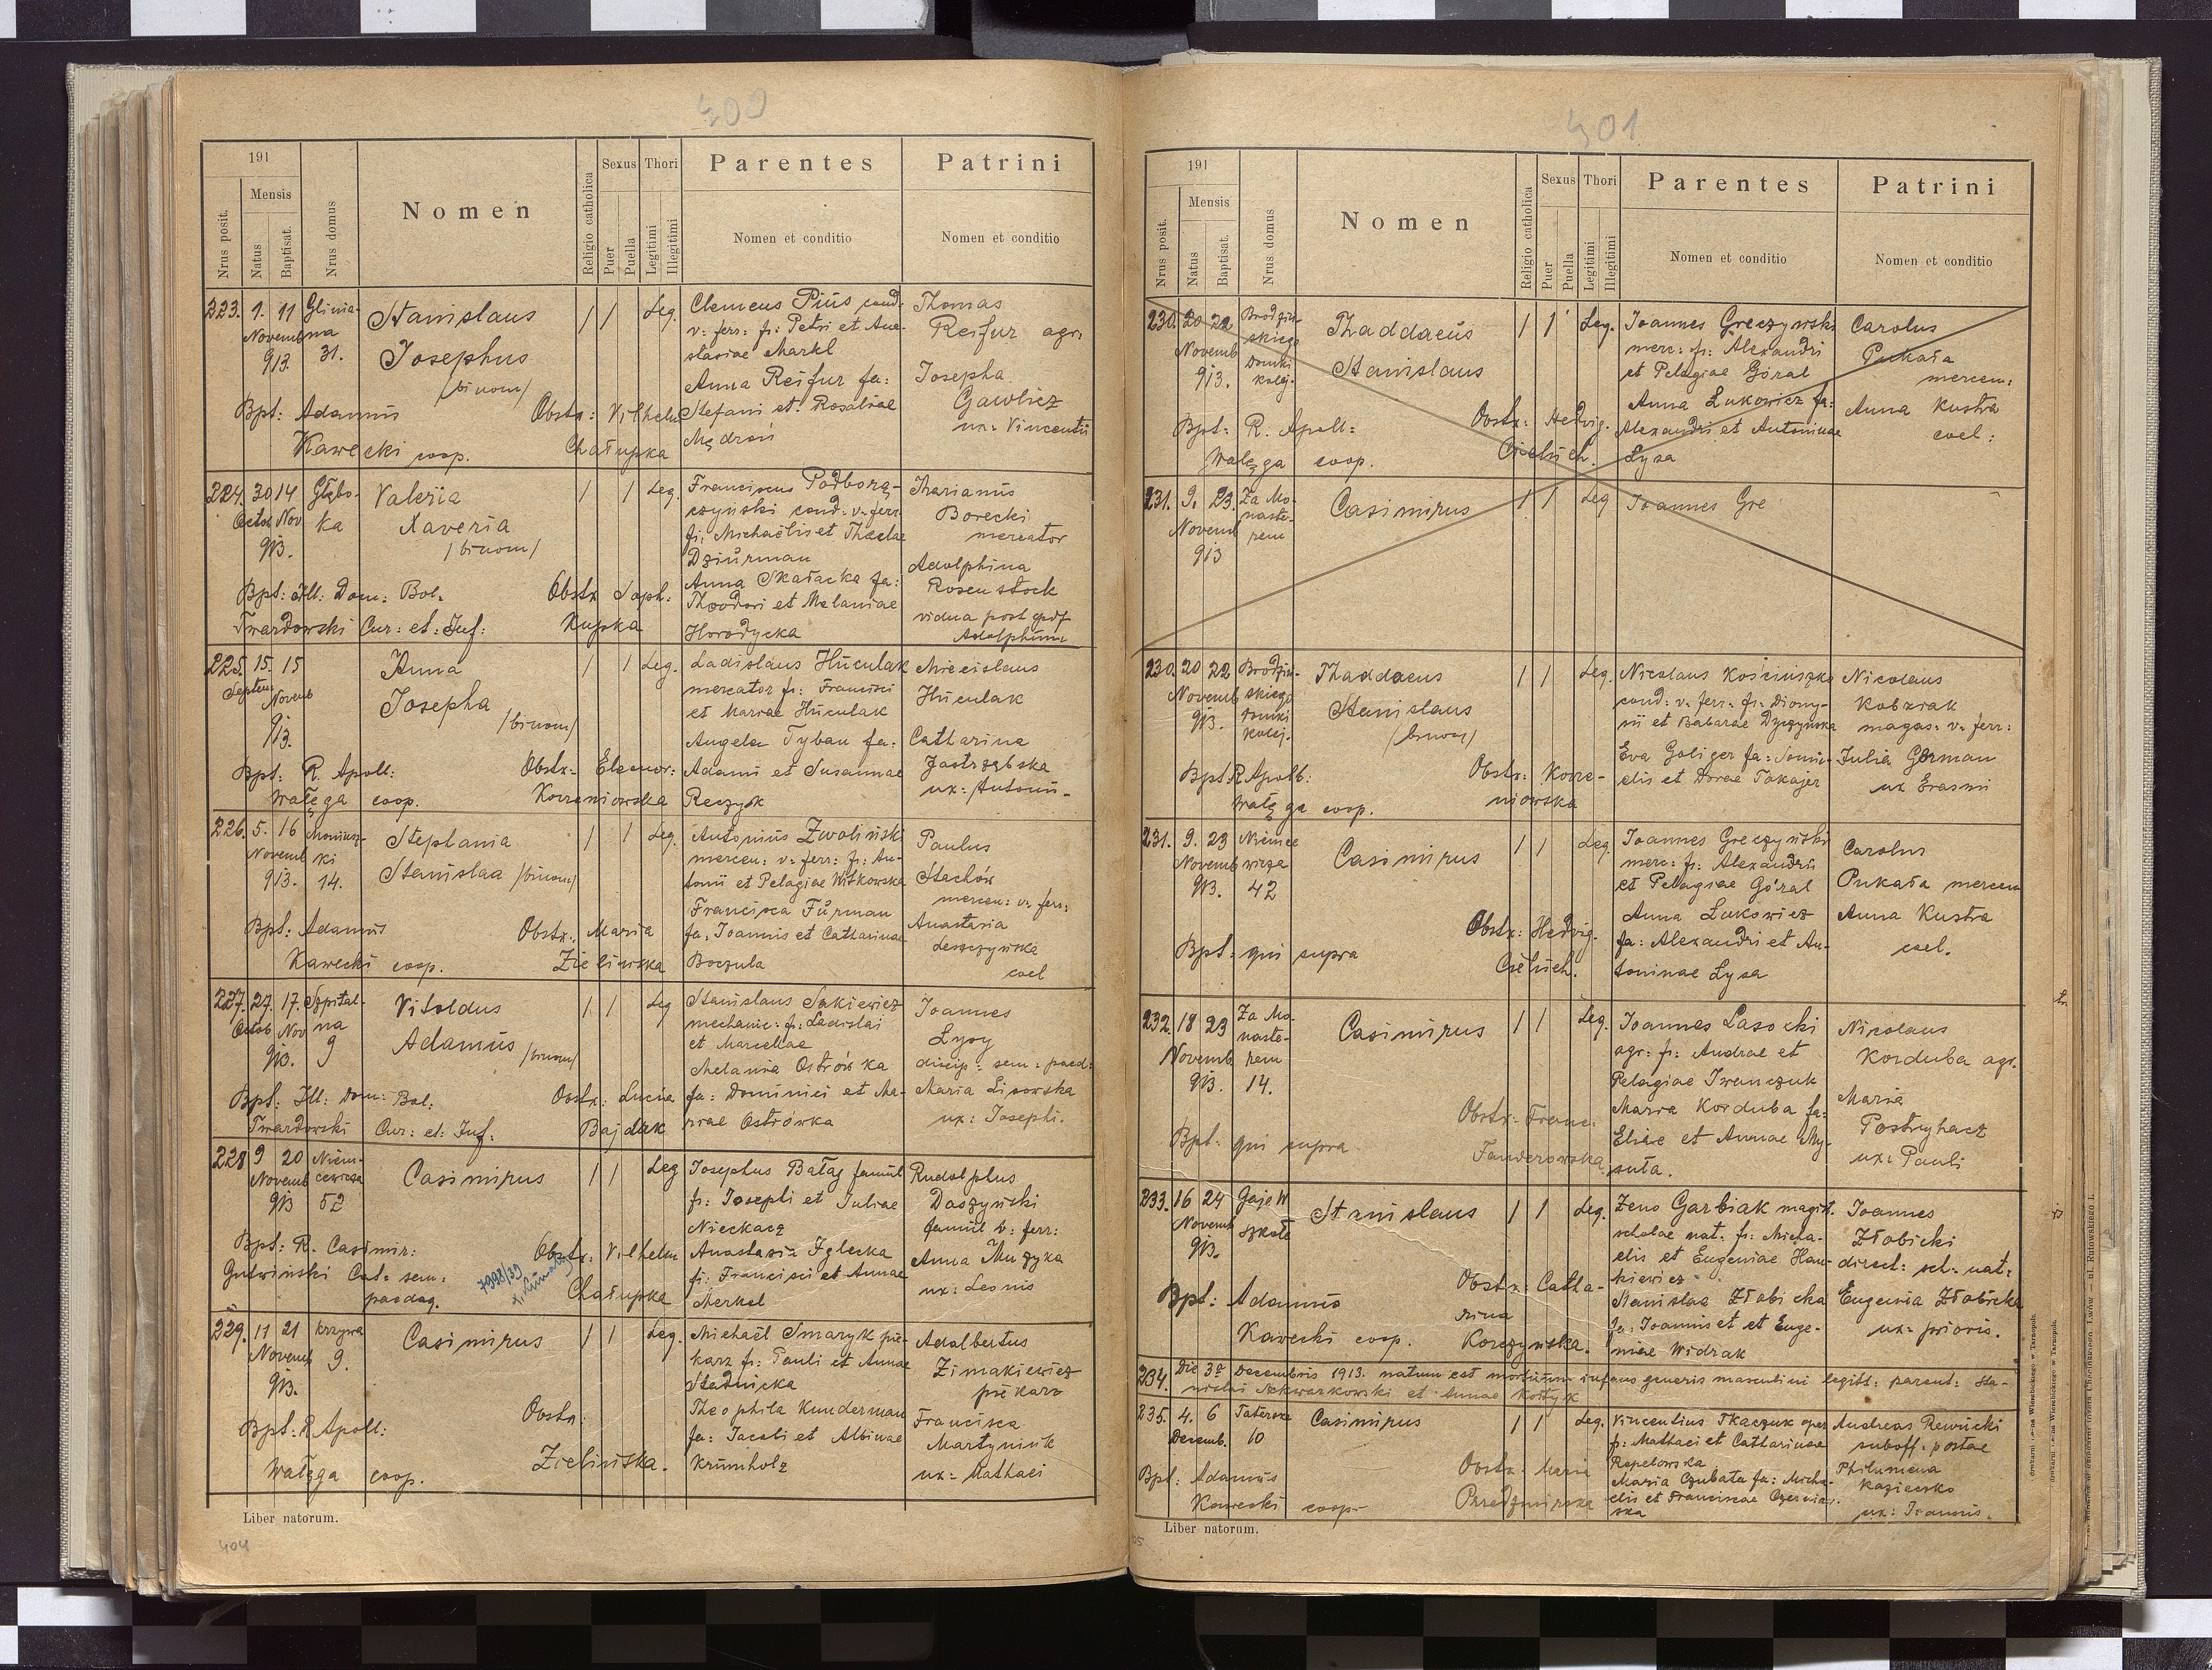 400
191
Nrus posit.
Mensis
Natus
Baptisat.
Nrus domus
Nomen
Religio catholica
Sexus
Puer
Puella
Thori
Legitimi
Illegitimi
Parentes
Nomen et conditio
Patrini
Nomen et conditio
223. 9. 11 Glinia-
Novemb na
913. 31.
Stanislaus
Josephus
/binom/
1 1 Leg.
Bpt: Adamus
Kawecki coop.
Obstr: Vilhelm
Chałupka
Clemens Pius cond.
v: ferr: fi: Petri et Ana-
stasiae Markl
Anna Reifur fa:
Stefani et Rosaliae
Mędroń
Thomas
Reifur agr.
Josepha
Gawlicz
ux: Vincentii
224. 30 14 Głębo-
Octob Nov ka
913.
Valeria
Xaveria
/binom/
1 1 Leg.
Bpt: Ill: Dom: Bol.
Twardowski Cur: et: Inf:
Obstr Soph:
Kupka
Franciscus Podhorą-
czyński cond: v: ferr
fi: Michaëlis et Theclae
Dziurman
Anna Skałacka fa:
Theodori et Melaniae
Horodycka
Marianus
Borecki
mercator
Adolphina
Rosenstock
vidua post
Adolphum
225. 15. 15
Septem Novemb
913.
Anna
Josepha
/binom/
1 1 Leg.
Bpt: R. Apoll:
Wałęga coop.
Obstr: Eleonor:
Korzeniowska
Ladislaus Huculak
mercator fi: Francisci
et Mariae Huculak
Angela Tyban fa:
Adami et Susannae
Reczyk
Miecislaus
Huculak
Catharina
Jastrzębska
ux: Antonii-
226. 5. 16 Moniusz-
Novemb ki
913. 14.
Stephania
Stanislaa /binom/
1 1 Leg.
Bpt: Adamus
Kawecki coop.
Obstr: Maria
Zielińska
Antonius Zwoliński
mercen: v: ferr: fi: An-
tonii et Pelagiae Witkowska
Francisca Furman
fa: Joannis et Catharinae
Boczula
Paulus
Stachów
mercen: v: ferr:
Anastasia
Leszczyńska
coel
227. 27. 17. Szpital-
Octob Nov na
913. 9
Vitoldus
Adamus /binom/
1 1 Leg
Bpt: Ill: Dom: Bol:
Twardowski Cur: et: Inf:
Obstr: Lucia
Bajdak
Stanislaus Sakiewicz
mechanic: fi: Ladislai
et Marcellae
Melania Ostrówka
fa: Dominici et Ma-
riae Ostrówka
Joannes
Lysy
discip: sem: paed:
Maria Lisowska
ux: Josephi.
228 9 20 Niem-
Novemb cewicza
913 52
Casimirus
1 1 Leg
Bpt: R. Casimir:
Gutwiński Cat: sem:
paedag.
7998/39
Obstr: Vilhelm
Chałupka
Josephus Bałaż famul
fi: Josephi et Juliae
Nieckacz
Anastasia Iglecka
fi: Francisci et Annae
Merkel
Rudolphus
Daszyński
famul v: ferr:
Anna Muzyka
ux: Leonis
229. 11 21 Krzywa
Novemb 9.
913.
Casimirus
1 1 Leg.
Bpt: R Apoll:
Wałęga coop.
Obstr:
Zielińska.
Michaël Smaryk pie-
karz fi: Pauli et Annae
Stadnicka
Theophila Kunderman
fa: Jacobi et Albinae
Krumholz
Adalbertus
Zimakiewicz
piekarz
Francisca
Martyniuk
ux: Mathaei
Liber natorum.
404
401
191
Nrus posit.
Mensis
Natus
Baptisat.
Nrus domus
Nomen
Religio catholica
Sexus
Puer
Puella
Thori
Legitimi
Illegitimi
Parentes
Nomen et conditio
Patrini
Nomen et conditio
230. 20 22 Brodziń-
Novemb skiego
913. Domki
kolej.
Thaddaeus
Stanislaus
1 1 Leg.
Bpt: R. Apoll:
Wałęga coop.
Obstr: Hedvig.
Cieluch.
Joannes Greczyński
merc: fi: Alexandri
et Pelagiae Góral
Anna Lukowicz fa:
Alexandri et Antoninae
Lysa
Carolus
Pukała
mercen:
Anna Kustra
coel:
231. 9. 23. Za Mo-
Novemb naste-
913 rem
Casimirus
1 1 Leg
Joannes Gre
230. 20 22 Brodziń-
Novemb skiego
913. Domki
kolej.
Thaddaeus
Stanislaus
/binom/
1 1 Leg.
Bpt: R Apoll:
Wałęga coop.
Obstr: Korze-
niowska
Nicolaus Kościuszko
cond: v: ferr: fi: Diony-
sii et Babarae Dyczyńska
Eva Goliger fa: Samu-
elis et Dorae Tokajer
Nicolaus
Kobziak
magas: v: ferr:
Julia German
ux Erasmi
231. 9. 23 Niemce
Novemb wicza
913. 42
Casimirus
1 1 Leg.
Bpt: qui supra
Obstr: Hedvig.
Cieluch.
Joannes Greczyński
merc: fi: Alexandri
et Pelagiae Góral
Anna Lukowicz
fa: Alexandri et An-
toninae Lysa
Carolus
Pukała mercen
Anna Kustra
coel.
232. 18 23 Za Mo-
Novemb naste-
913. rem
14.
Casimirus
1 1 Leg.
Bpt: qui supra
Obstr: Franc:
Janderowska
Joannes Lasocki
agr: fi: Andrae et
Pelagiae Iwanczuk
Maria Korduba fa:
Eliae et Annae My-
suta.
Nicolaus
Korduba agr.
Maria
Postryhacz
ux: Pauli
233. 16 24 Gaje W
Novemb szkoła
913.
Stanislaus
1 1 Leg.
Bpt: Adamus
Kawecki coop.
Obstr: Catha-
rina
Korczyńska.
Zeno Garbiak magist.
scholae nat. fi: Micha-
elis et Eugeniae Han-
kiewicz
Stanislaa Złobicka
fa: Joannis et et Euge-
niae Widrak
Joannes
Złobicki
direct: sch: nat:
Eugenia Złobicka
ux: prioris.
234. Die 3a Decembris 1913. natum est mortuum infans generis masculini legitt: parent: Sta-
nislai Nakwarkowski et Annae Kostyk
235. 4. 6 Tatarska
Decemb. 10
Casimirus
1 1 Leg.
Bpt: Adamus
Kawecki coop-
Obstr: Maria
Przedzmirska
Vincentius Tkaczuk oper
fi: Mathaei et Catharinae
Repelowska
Maria Czubata fa: Micha-
elis et Franciscae Czerwiń-
ska
Andreas Rewucki
suboff: postae
Philumena
Kaziewko
ux: Joannis.
Liber natorum.